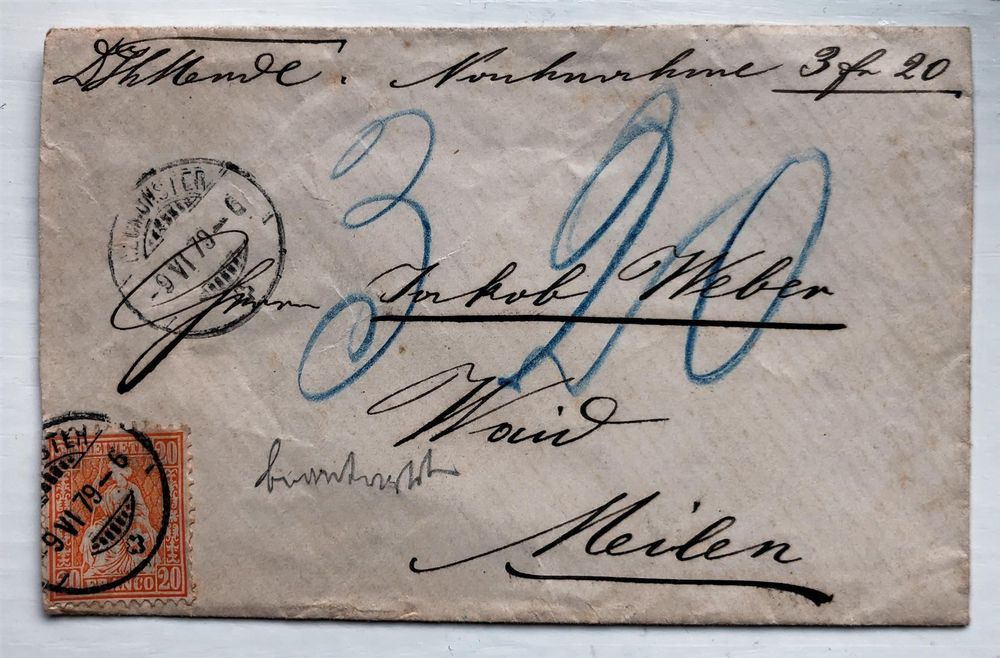 Nachnahme 3 fr 20
3 20
NEUMÜNSTER
-9 VI 79-6
Herrn Jakob Weber
Waid
Meilen
STER
-9 VI 79-6
HELVETIA 20
20 FRANCO 20